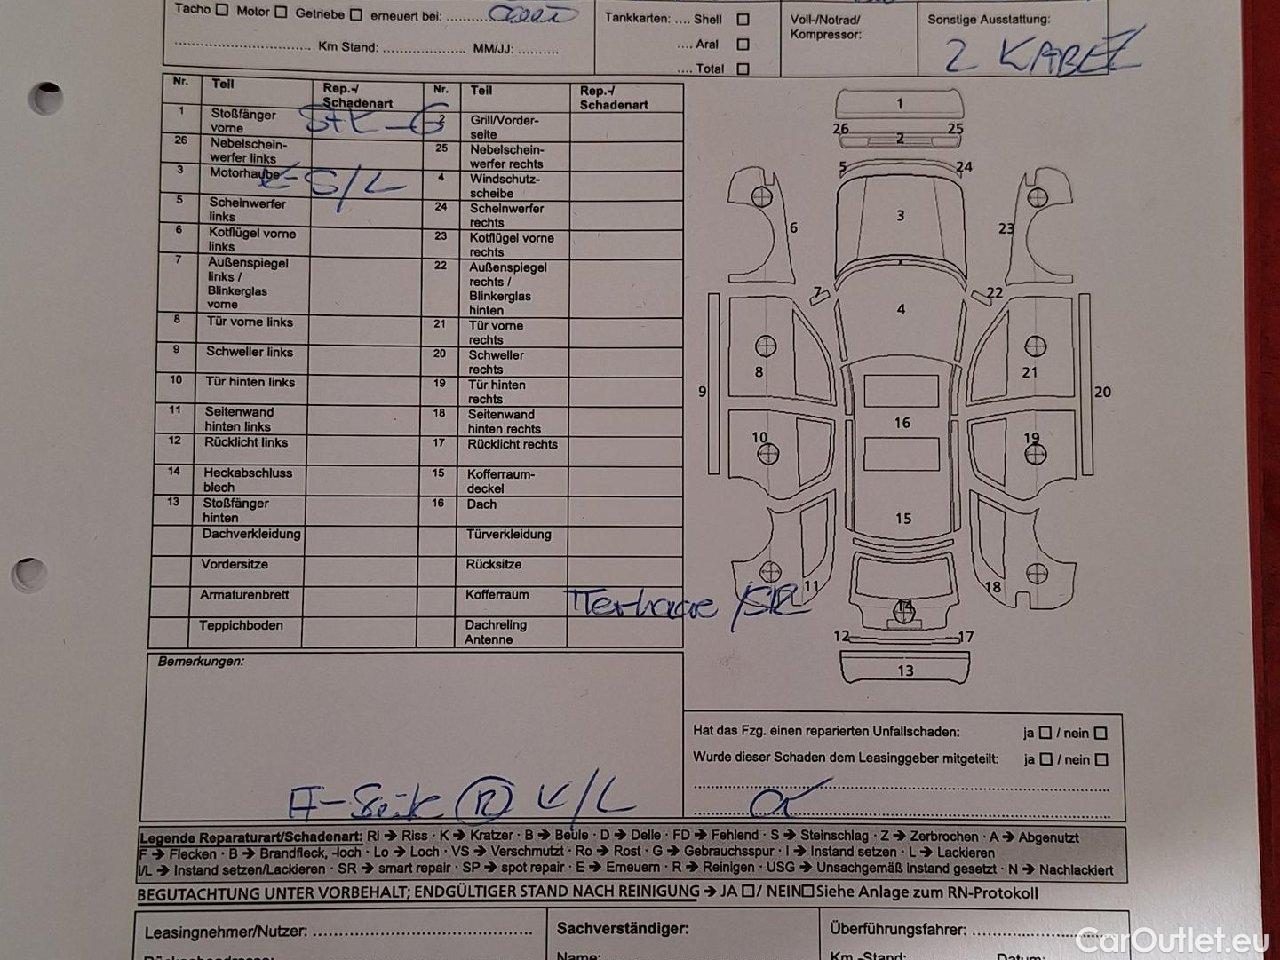 Tacho Motor Getriebe erneuert bei: ..........
Km Stand: .................. MM/JJ: ..........
Tankkarten: .... Shell
.... Aral
.... Total
Voll-/Notrad/
Kompressor:
Sonstige Ausstattung:
2 KABEL
Nr. Teil Rep.-/ Schadenart Nr. Teil Rep.-/ Schadenart
1 Stoßfänger vorne 2 Grill/Vorder- seite
26 Nebelschein- werfer links 25 Nebelschein- werfer rechts
3 Motorhaube S/L 4 Windschutz- scheibe
5 Scheinwerfer links 24 Scheinwerfer rechts
6 Kotflügel vorne links 23 Kotflügel vorne rechts
7 Außenspiegel links / Blinkerglas vorne 22 Außenspiegel rechts / Blinkerglas hinten
8 Tür vorne links 21 Tür vorne rechts
9 Schweller links 20 Schweller rechts
10 Tür hinten links 19 Tür hinten rechts
11 Seitenwand hinten links 18 Seitenwand hinten rechts
12 Rücklicht links 17 Rücklicht rechts
14 Heckabschluss blech 15 Kofferraum- deckel
13 Stoßfänger hinten 16 Dach
Dachverkleidung Türverkleidung
Vordersitze Rücksitze
Armaturenbrett Kofferraum Tierhaare /SR
Teppichboden Dachreling Antenne
1
26 2 25
5 24
6 3 23
7 22
4
8 21
9 20
16
10 19
15
11 18
14
12 17
13
Bemerkungen:
(R) K/L
Hat das Fzg. einen reparierten Unfallschaden: ja / nein
Wurde dieser Schaden dem Leasinggeber mitgeteilt: ja / nein
Legende Reparaturart/Schadenart: RI → Riss · K → Kratzer · B → Beule · D → Delle · FD → Fehlend · S → Steinschlag · Z → Zerbrochen · A → Abgenutzt
F → Flecken · B → Brandfleck, -loch · Lo → Loch · VS → Verschmutzt · Ro → Rost · G → Gebrauchsspur · I → Instand setzen · L → Lackieren
I/L → Instand setzen/Lackieren · SR → smart repair · SP → spot repair · E → Erneuern · R → Reinigen · USG → Unsachgemäß instand gesetzt · N → Nachlackiert
BEGUTACHTUNG UNTER VORBEHALT; ENDGÜLTIGER STAND NACH REINIGUNG → JA / NEIN Siehe Anlage zum RN-Protokoll
Leasingnehmer/Nutzer: ..................
Sachverständiger:
Name:
Überführungsfahrer: ..................
Km.-Stand: Datum:
CarOutlet.eu